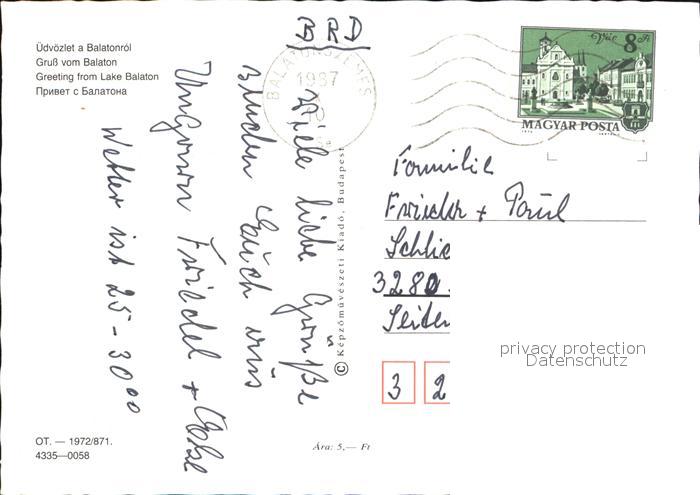 Üdvözlet a Balatonról
Gruß vom Balaton
Greeting from Lake Balaton
Привет с Балатона
BRD
BALATONSZEMES
1987
Vác 8 Ft
MAGYAR POSTA
Viele liebe Grüße
senden Euch aus
Ungarn Friedel +
Wetter ist 25-30⁰⁰
© Képzőművészeti Kiadó, Budapest
Familie
+ Paul
Schlie
3280
3 2
privacy protection
Datenschutz
OT. — 1972/871.
4335—0058
Ára: 5,— Ft